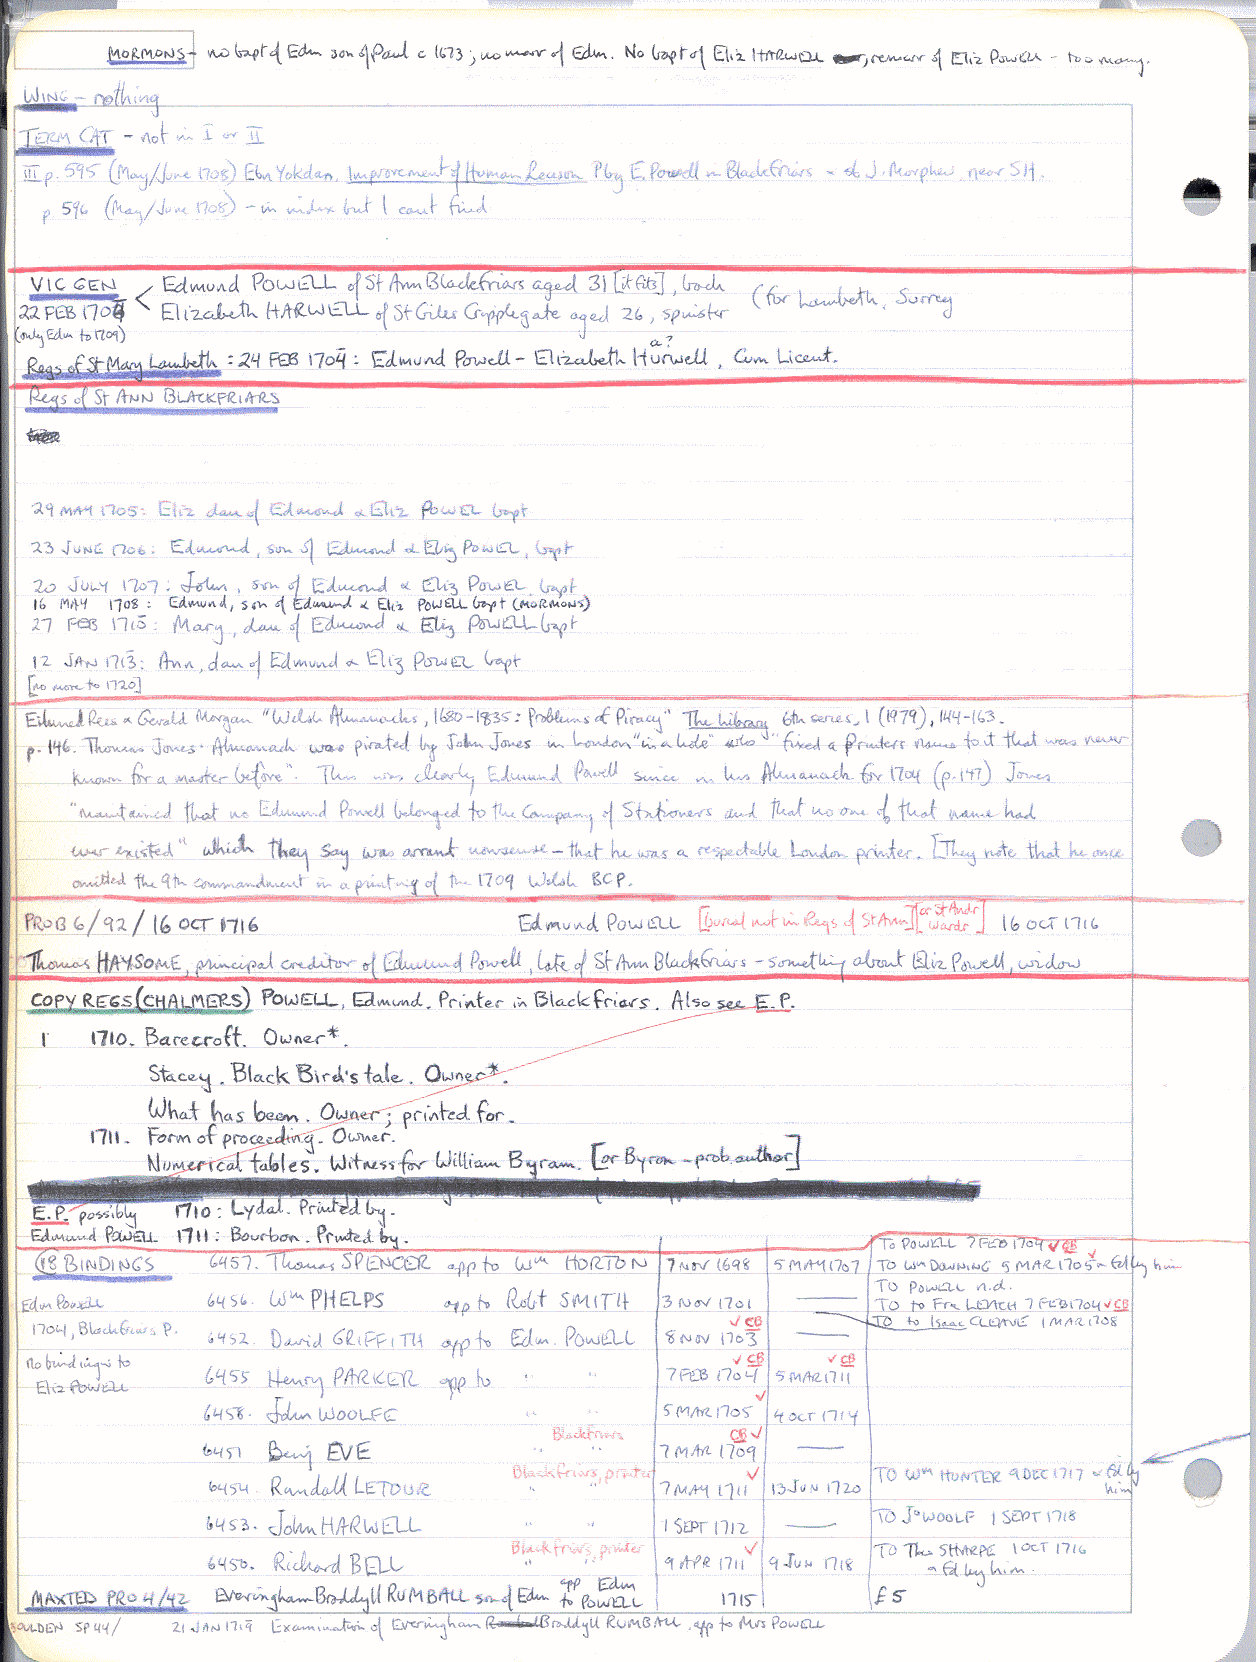 MORMONS - no bapt of Edm son of Paul c 1673; no marr of Edm. No bapt of Eliz HARWELL, remarr of Eliz POWELL - too many.
WING - nothing
TERM CAT - not in I or II
III p. 595 (May/June 1708) Ebn Yokdan, Improvement of Human Reason P by E. Powell in Blackfriars & sb J. Morphew near SH.
p. 596 (May/June 1708) - in index but I can't find
VIC GEN Edmund POWELL of St Ann Blackfriars aged 31 [it fits], bach
22 FEB 170 Elizabeth HARWELL of St Giles Cripplegate aged 26, spinster (for Lambeth, Surrey
(only Edm to 1709)
a?
Regs of St Mary Lambeth : 24 FEB 1704 : Edmund Powell - Elizabeth Hurwell, Cum Licent.
Regs of St ANN BLACKFRIARS
29 MAY 1705: Eliz dau of Edmond & Eliz POWEL bapt
23 JUNE 1706: Edmond, son of Edmond & Eliz POWEL, bapt
20 JULY 1707: John, son of Edmond & Eliz POWEL bapt
16 MAY 1708: Edmund, son of Edmund & Eliz POWELL bapt (MORMONS)
27 FEB 171 : Mary, dau of Edmond & Eliz POWELL bapt
12 JAN 1713: Ann, dau of Edmund & Eliz POWEL bapt
[no more to 1720]
Eiluned Rees & Gerald Morgan "Welsh Almanacks, 1680-1835: Problems of Piracy" The Library 6th series, 1 (1979), 144-163.
p. 146. Thomas Jones' Almanack was pirated by John Jones in London "in a hole" who "fixed a Printers name to it that was never
known for a master before". This was clearly Edmund Powell since in his Almanack for 1704 (p.147) Jones
"maintained that no Edmund Powell belonged to the Company of Stationers and that no one of that name had
ever existed" which they say was arrant nonsense - that he was a respectable London printer. [They note that he once
omitted the 9th commandment in a printing of the 1709 Welsh BCP.
PROB 6/92/16 OCT 1716 Edmund POWELL [burial not in Regs of St Ann] [or St Andr Wardr] 16 OCT 1716
Thomas HAYSOME, principal creditor of Edmund Powell, late of St Ann Blackfriars - something about Eliz Powell, widow
COPY REGS (CHALMERS) POWELL, Edmund. Printer in Blackfriars. Also see E.P.
1 1710. Barecroft. Owner*.
Stacey. Black Bird's tale. Owner*.
What has been. Owner; printed for.
1711. Form of proceeding. Owner.
Numerical tables. Witness for William Byram. [or Byron - prob. author]
E.P. possibly 1710: Lydal. Printed by.
Edmund POWELL 1711: Bourbon. Printed by.
TO POWELL 7 FEB 1704 ✓ CB
18 BINDINGS 6457. Thomas SPENCER app to Wm HORTON 7 NOV 1698 5 MAY 1707 TO Wm DOWNING 5 MAR 1705 ✓ & Ed by him
TO POWELL n.d.
Edm Powell 6456. Wm PHELPS app to Robt SMITH 3 NOV 1701 — TO to Fra LEACH 7 FEB 1704 ✓ CB
✓ CB TO to Isaac CLEAVE 1 MAR 1708
1704, Blackfriars P. 6452. David GRIFFITH app to Edm. POWELL 8 NOV 1703 —
✓ CB ✓ CB
no bindings to Eliz POWELL 6455 Henry PARKER app to " " 7 FEB 1704 5 MAR 1711
6458. John WOOLFE " " 5 MAR 1705 ✓ 4 OCT 1714
Blackfriars CB ✓
6451 Benj EVE " " 7 MAR 1709 —
Blackfriars, printer ✓
6454. Randall LETOUR " " 7 MAY 1711 13 JUN 1720 TO Wm HUNTER 9 DEC 1717 & Ed by him
6453. John HARWELL " " 1 SEPT 1712 — TO Jo WOOLF 1 SEPT 1718
Blackfriars, printer ✓
6450. Richard BELL " " 9 APR 1711 9 JUN 1718 TO Tho SHARPE 1 OCT 1716 & Ed by him.
MAXTED PRO 4/42 Everingham Braddyll RUMBALL son of Edm app to Edm POWELL 1715 £5
OULDEN SP 44/ 21 JAN 171 Examination of Everingham Braddyll RUMBALL, app to Mrs POWELL